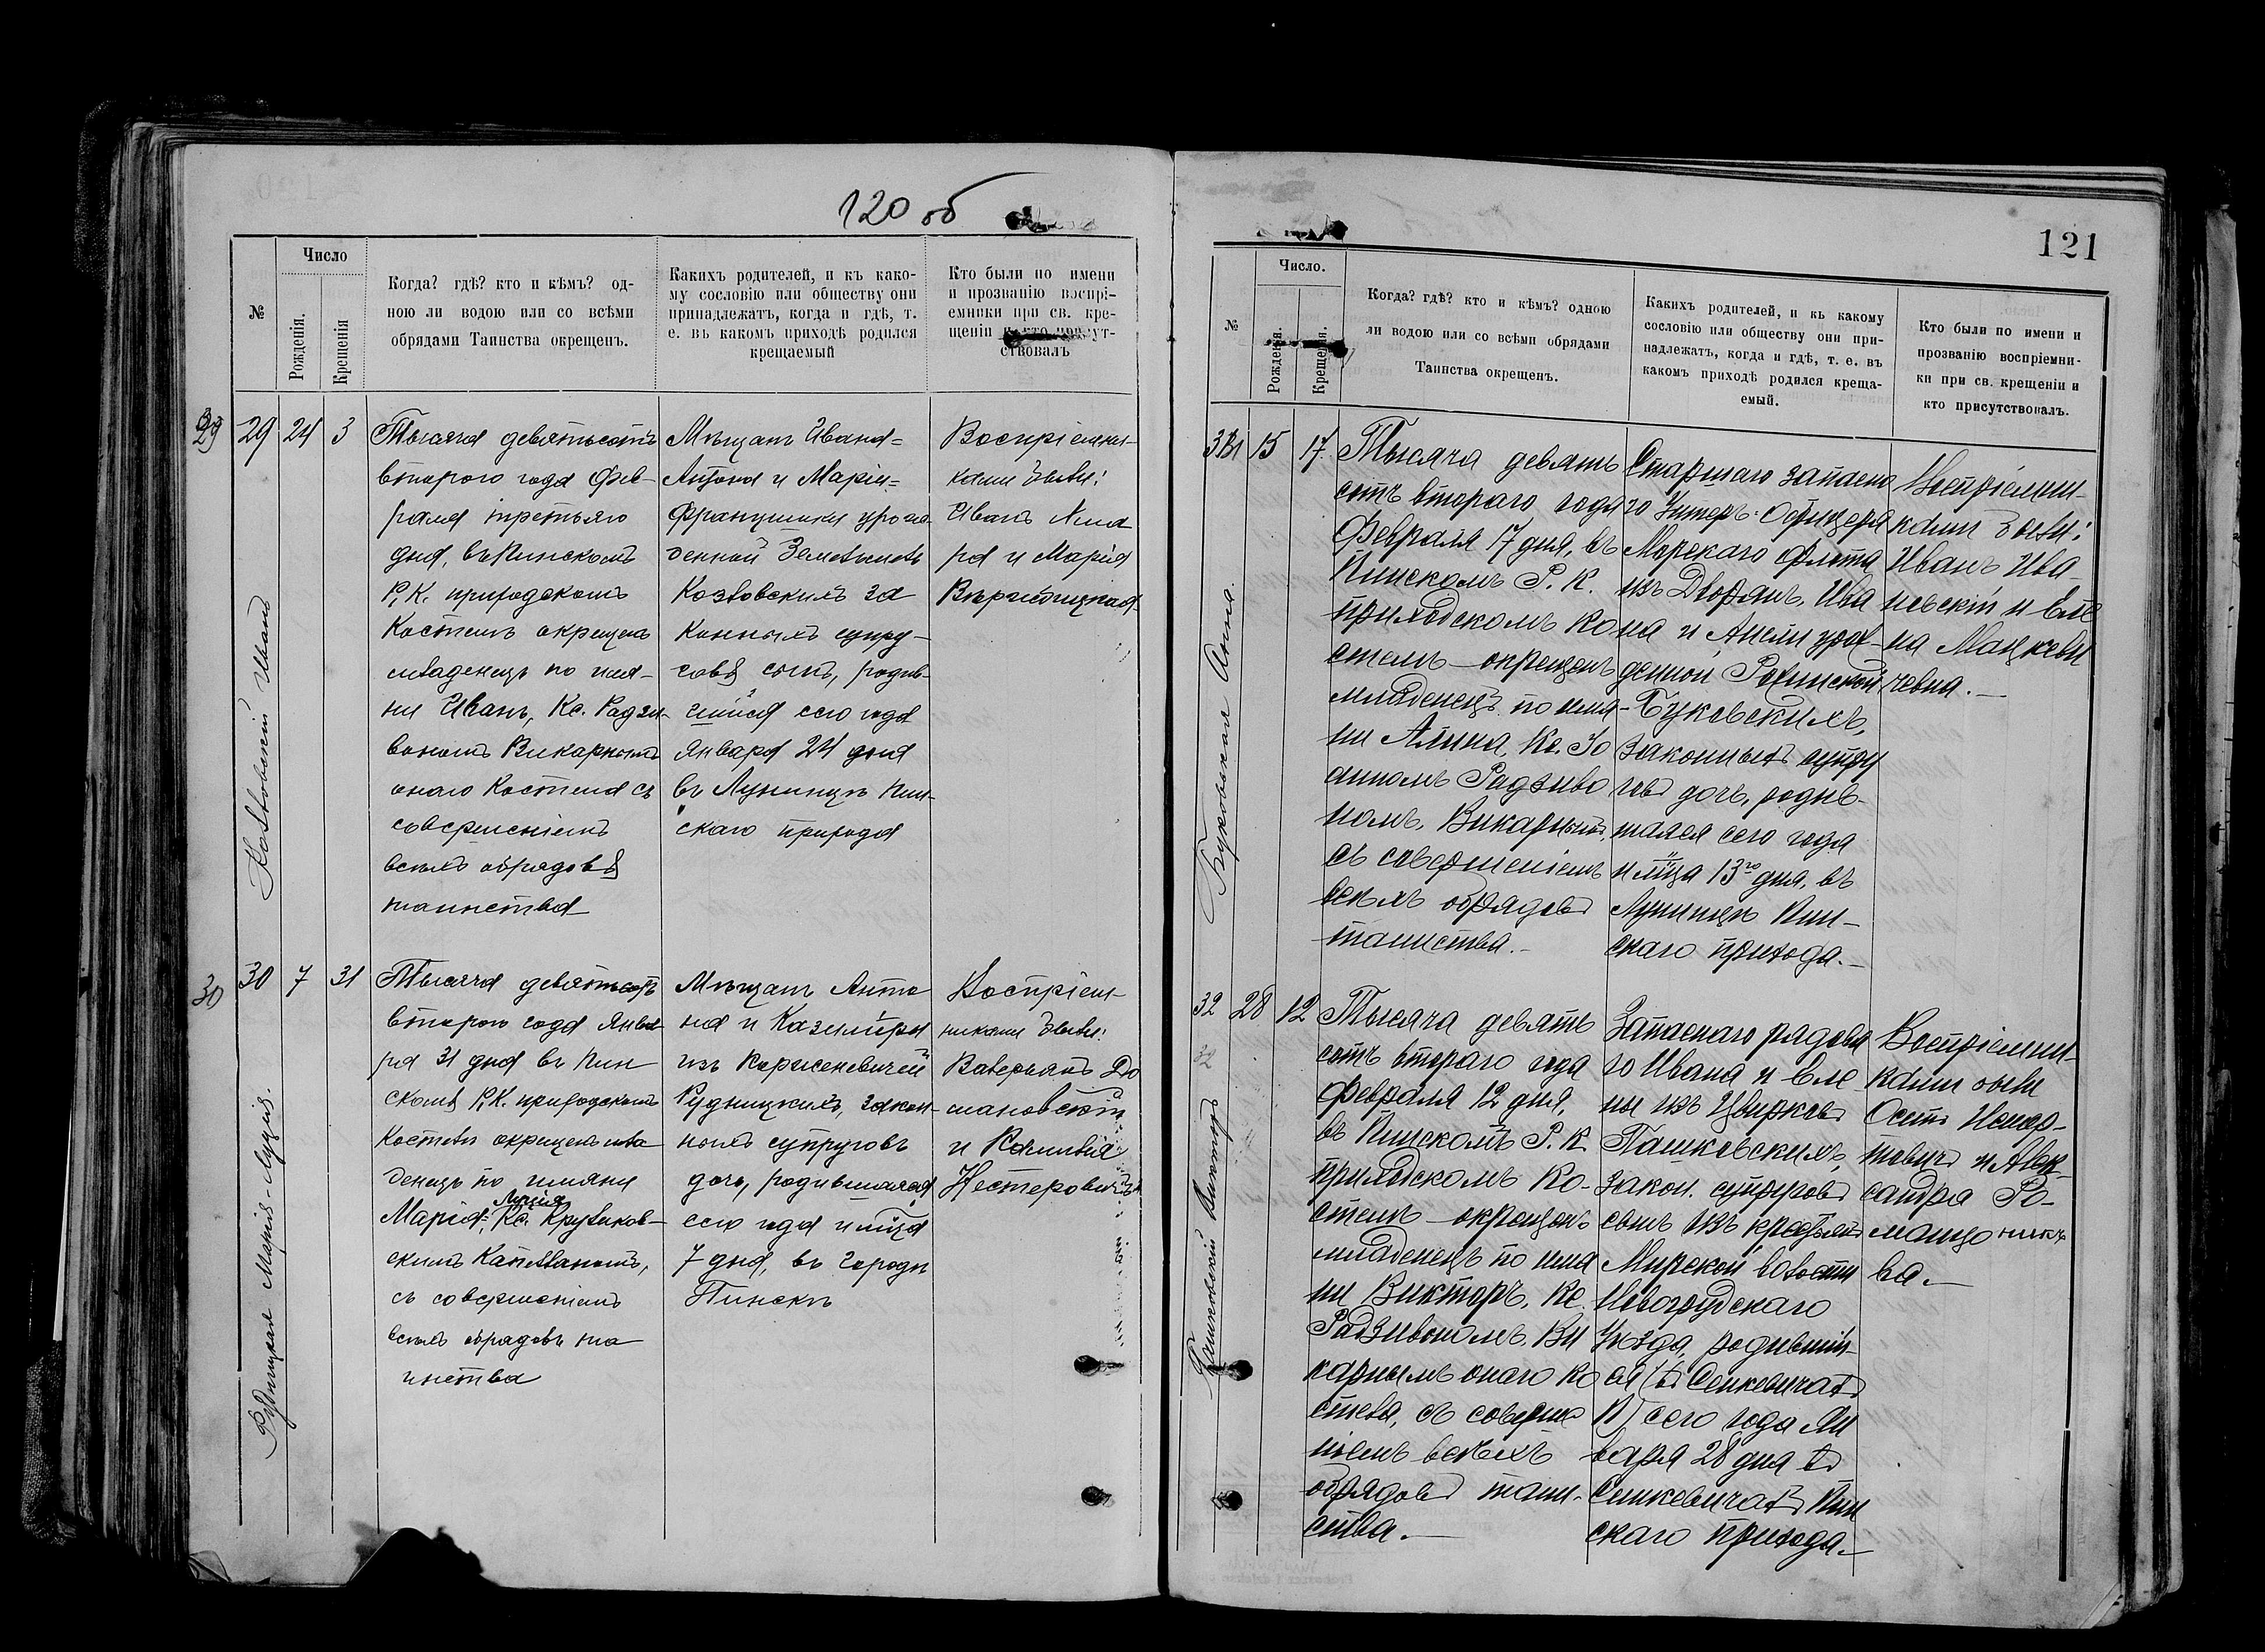 120 об
№
Число
Рожденія.
Крещенія
Когда? гдѣ? кто и кѣмъ? од-
ною ли водою или со всѣми
обрядами Таинства окрещенъ.
Каихъ родителей, и къ како-
му сословію или обществу они
принадлежатъ, когда и гдѣ, т.
е. въ какомъ приходѣ родился
крещаемый
Кто были по имени
и прозванію воспрі-
емники при св. кре-
щеніи и кто присут-
ствовалъ
29
29
24
3
Козловскій Иванъ
Тысяча девятьсотъ
второго года Фев-
раля третьяго
дня, въ Пинскомъ
Р. К. приходскомъ
Костелѣ окрещенъ
младенецъ по имя-
ни Иванъ, Кс. Радзи-
вономъ Викарнымъ
онаго Костела съ
совершеніемъ
всѣхъ обрядовъ
таинства
Мѣщанъ Ивана=
Антона и Маріи=
Францишки урож-
денной
Козловскихъ за
конныхъ супру-
говъ сынъ, родив-
шійся сего года
Января 24 дня
въ Лунинцѣ Пин-
скаго прихода
Воспріемни-
ками были:
Иванъ
и Марія
30
30
7
31
Рудницкая Марія-Луція.
Тысяча девятьсотъ
второго года Янва-
ря 31 дня въ Пин
скомъ Р. К. приходскомъ
Костелѣ окрещенъ мла
денецъ по имяни
Луція
Марія=, Кс. Круликов-
скимъ Капелланомъ,
съ совершеніемъ
всѣхъ обрядовъ та
инства
Мѣщанъ Анто
на и Казимѣры
изъ Корженевичей
Рудницкихъ, закон-
ныхъ супруговъ
дочь, родившаяся
сего года и мѣсца
7 дня, въ городѣ
Пинскѣ
Воспріем-
никами были:
Валерьянъ До
мановскій
и
Нестеровичъ
121
№
Число.
Рожденія
Крещенія.
Когда? гдѣ? кто и кѣмъ? одною
ли водою или со всѣми обрядами
Таинства окрещенъ.
Какихъ родителей, и къ какому
сословію или обществу они при-
надлежатъ, когда и гдѣ, т. е. въ
какомъ приходѣ родился креща-
емый.
Кто были по имени и
прозванію воспріемни-
ки при св. крещеніи и
кто присутствовалъ.
31
15
17.
Буковская Анна.
Тысяча девять
сотъ второго года
Февраля 17 дня, въ
Пинскомъ Р. К.
приходскомъ ко
стелѣ окрещенъ
младенецъ по имя-
ни Анна, Кс. Іо
анномъ Радзиво
номъ, Викарнымъ,
съ совершеніемъ
всѣхъ обрядовъ
таинства.-
Старшаго запасна
го Унтеръ-Офицера
Морскаго флота
изъ Дворянъ, Ива
на и Анели урож-
денной
Буковскихъ,
законныхъ супру
говъ дочь, родив-
шаяся сего года
и мѣсца 13го дня, въ
Лунинцѣ Пин-
скаго прихода.-
Воспріемни-
ками были:
Иванъ Ива-
невскій и Еле
на Мацкеви
чевна.-
32
32
28
12
Пашковскій Викторъ
Тысяча девять
сотъ второго года
Февраля 12 дня,
въ Пинскомъ Р. К
приходскомъ Ко-
стелѣ окрещенъ
младенецъ по имя
ни Викторъ, Кс.
Радзивономъ, Ви
карнымъ онаго Ко
стела, съ соверше
ніемъ всѣхъ
обрядовъ таин-
ства.-
Запаснаго рядова
го Ивана и Еле
ны изъ Цвирковъ
Пашковскихъ,
закон. супруговъ
сынъ изъ крестьянъ
Мирской волости
Новогрудскаго
Уѣзда, родившій-
ся (въ Сенкевичахъ
) сего года Ян
варя 28 дня въ
Сенкевичахъ Пин
скаго прихода.-
Воспріемни-
ками были
Осипъ
и Алек
сандра Ро-
ва.-